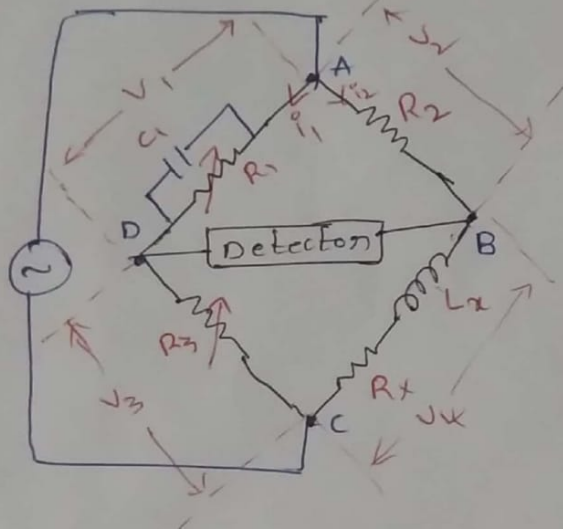 A
V1
V2
i1
i2
R2
C1
R1
D
Detector
B
Lx
R3
Rx
V3
C
V4
~